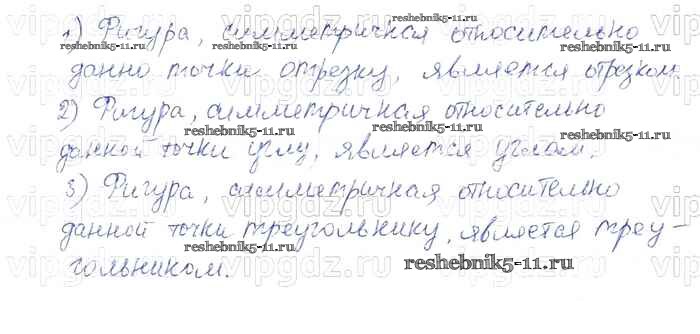 1) Фигура, симметричная относительно
данно точки отрезку, является отрезком.
2) Фигура, симметричная относительно
данной точки углу, является углом.
3) Фигура, симметричная относительно
данной точки треугольнику, является треу-
гольником.
reshebnik5-11.ru
reshebnik5-11.ru
reshebnik5-11.ru
reshebnik5-11.ru
reshebnik5-11.ru
reshebnik5-11.ru
reshebnik5-11.ru